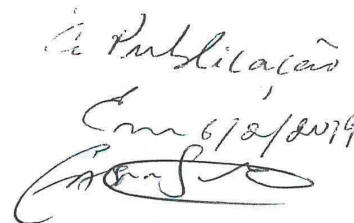 à Publicação
Em 6/2/2019